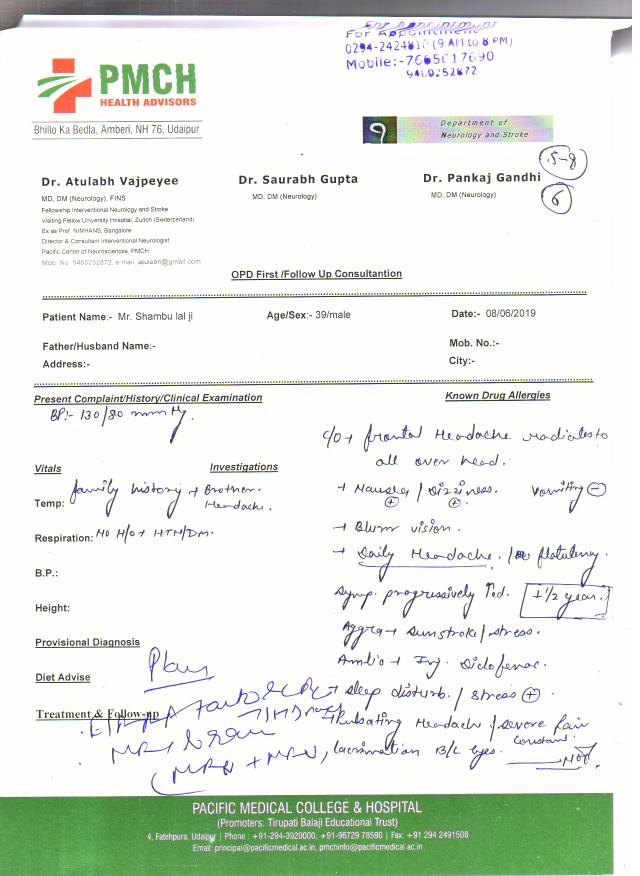 For Appointment
For Appointment
0294-2424810 (9 AM to 8 PM)
Mobile:-7665017690
9460252872
PMCH
HEALTH ADVISORS
Bhillo Ka Bedla, Amberi, NH 76, Udaipur
9
Department of
Neurology and Stroke
5-8
6
Dr. Atulabh Vajpeyee
Dr. Saurabh Gupta
Dr. Pankaj Gandhi
MD, DM (Neurology), FINS
MD, DM (Neurology)
MD, DM (Neurology)
Fellowship Interventional Neurology and Stroke
Visiting Fellow University Hospital, Zurich (Switzerland)
Ex as Prof NIMHANS, Bangalore
Director & Consultant Interventional Neurologist
Pacific Center of Neurosciences, PMCH
Mob: No 9460252872, e mail: atulabh@gmail.com
OPD First /Follow Up Consultantion
Patient Name:- Mr. Shambu lal ji
Age/Sex:- 39/male
Date:- 08/06/2019
Father/Husband Name:-
Mob. No.:-
Address:-
City:-
Present Complaint/History/Clinical Examination
Known Drug Allergies
BP:- 130/80 mmHg.
C/O + frontal Headache radiates to
all over head.
Vitals
Investigations
+ Nausea / Dizziness. Vomiting (-)
(+) (+)
Temp: family history + Brother.
Headache.
+ Blurr vision.
Respiration: NO H/o + HTN/DM.
+ Daily Headache. / flatulency.
B.P.:
Symp. progressively ↑ed. + 1/2 year.
Height:
Aggra + sunstroke / stress.
Provisional Diagnosis
Amlio + Inj. Diclofenac.
Plan
Diet Advise
+ sleep disturb. / stress (+)
Treatment & Follow-up
+ Pulsating Headache / severe Pain
constant.
MRI brain
(MRA + MRV)
, lacrimation B/L eyes.
PACIFIC MEDICAL COLLEGE & HOSPITAL
(Promoters: Tirupati Balaji Educational Trust)
4, Fatehpura, Udaipur | Phone : +91-294-3920000, +91-96729 78590 | Fax: +91 294 2491508
Email: principal@pacificmedical.ac.in, pmchinfo@pacificmedical.ac.in